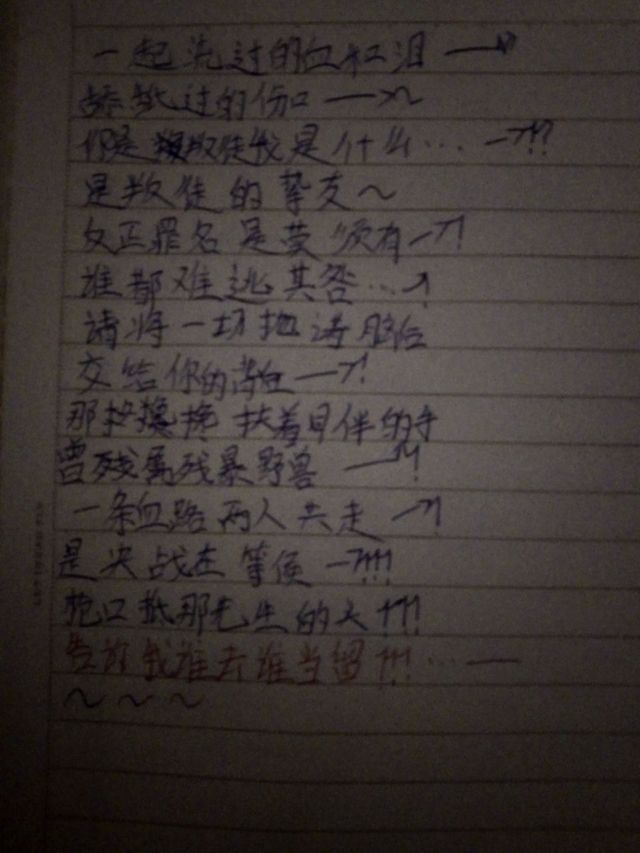 一起流过的血和泪 —→
舔舐过的伤口 —→~
你是叛徒我是什么… —→!?
是叛徒的挚友~
反正罪名是莫须有—→!
谁都难逃其咎…→
请将一切抛诸脑后
交给你的 —→!
那 挽扶着同伴的手
曾残 残暴野兽 —→!
一条血路两人共走 —→!
是决战在等候 —→!!!
枪口抵那 生的头!!!!
告诉我谁去谁当留!!!…—
~ ~ ~